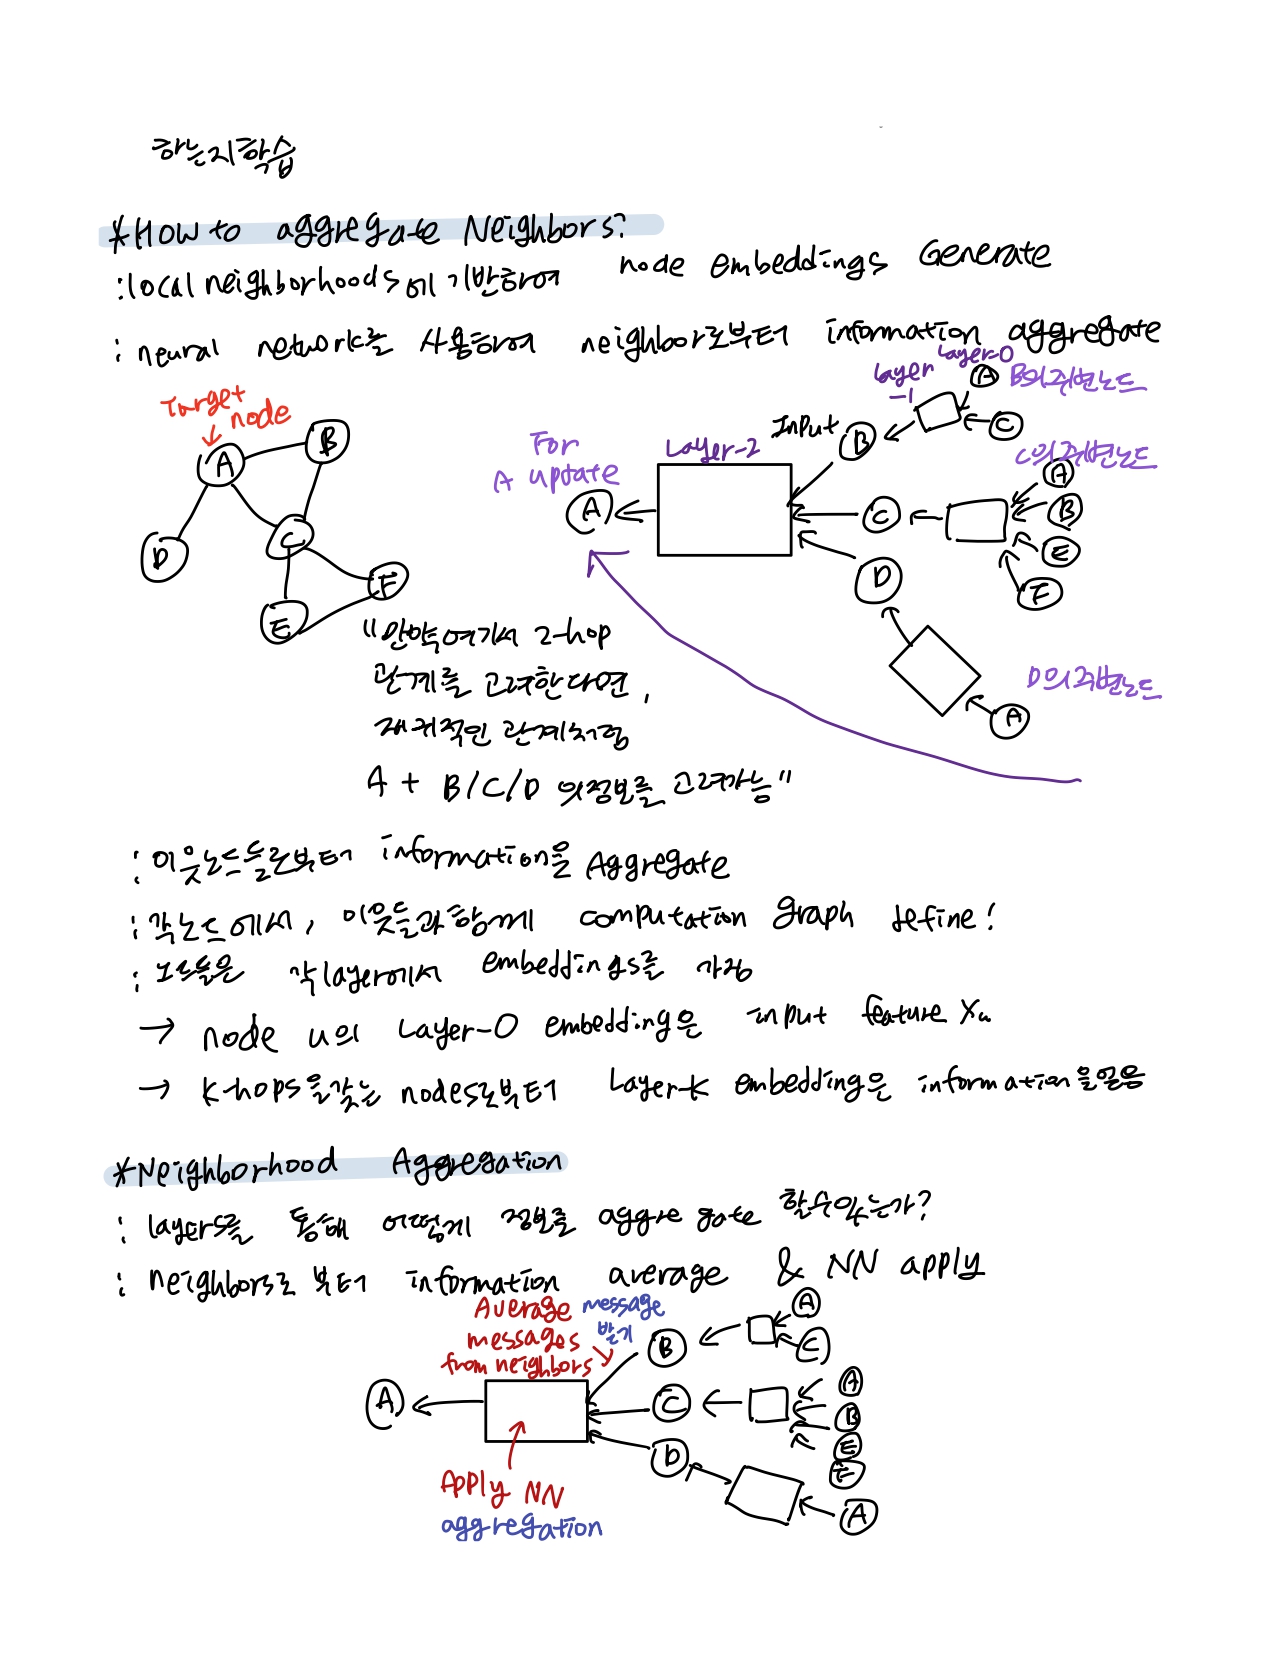 하는지 학습
*How to aggregate Neighbors?
: local neighborhoods에 기반하여 node embeddings Generate
: neural network를 사용하여 neighbor로부터 information aggregate
Target node
A
B
C
D
E
F
For A update
A
Layer-2
Input
Layer-1
Layer-0
B
A
C
B의 주변노드
C
A
B
E
F
C의 주변노드
D
A
D의 주변노드
"만약 여기서 2-hop
관계를 고려한다면,
재귀적인 관계처럼
A + B/C/D 의 정보를 고려가능"
: 이웃노드들로부터 information을 Aggregate
: 각노드에서, 이웃들과 함께 computation graph define!
: 노드들은 각 layer에서 embeddings를 가짐
→ node u의 Layer-0 embedding은 input feature Xu
→ K-hops을 갖는 nodes로부터 Layer-K embedding은 information을 얻음
*Neighborhood Aggregation
: layers를 통해 어떻게 정보를 aggregate 할 수 있는가?
: neighbors로부터 information average & NN apply
Average messages from neighbors
message 받기
A
B
A
C
C
A
B
E
F
D
A
Apply NN
aggregation